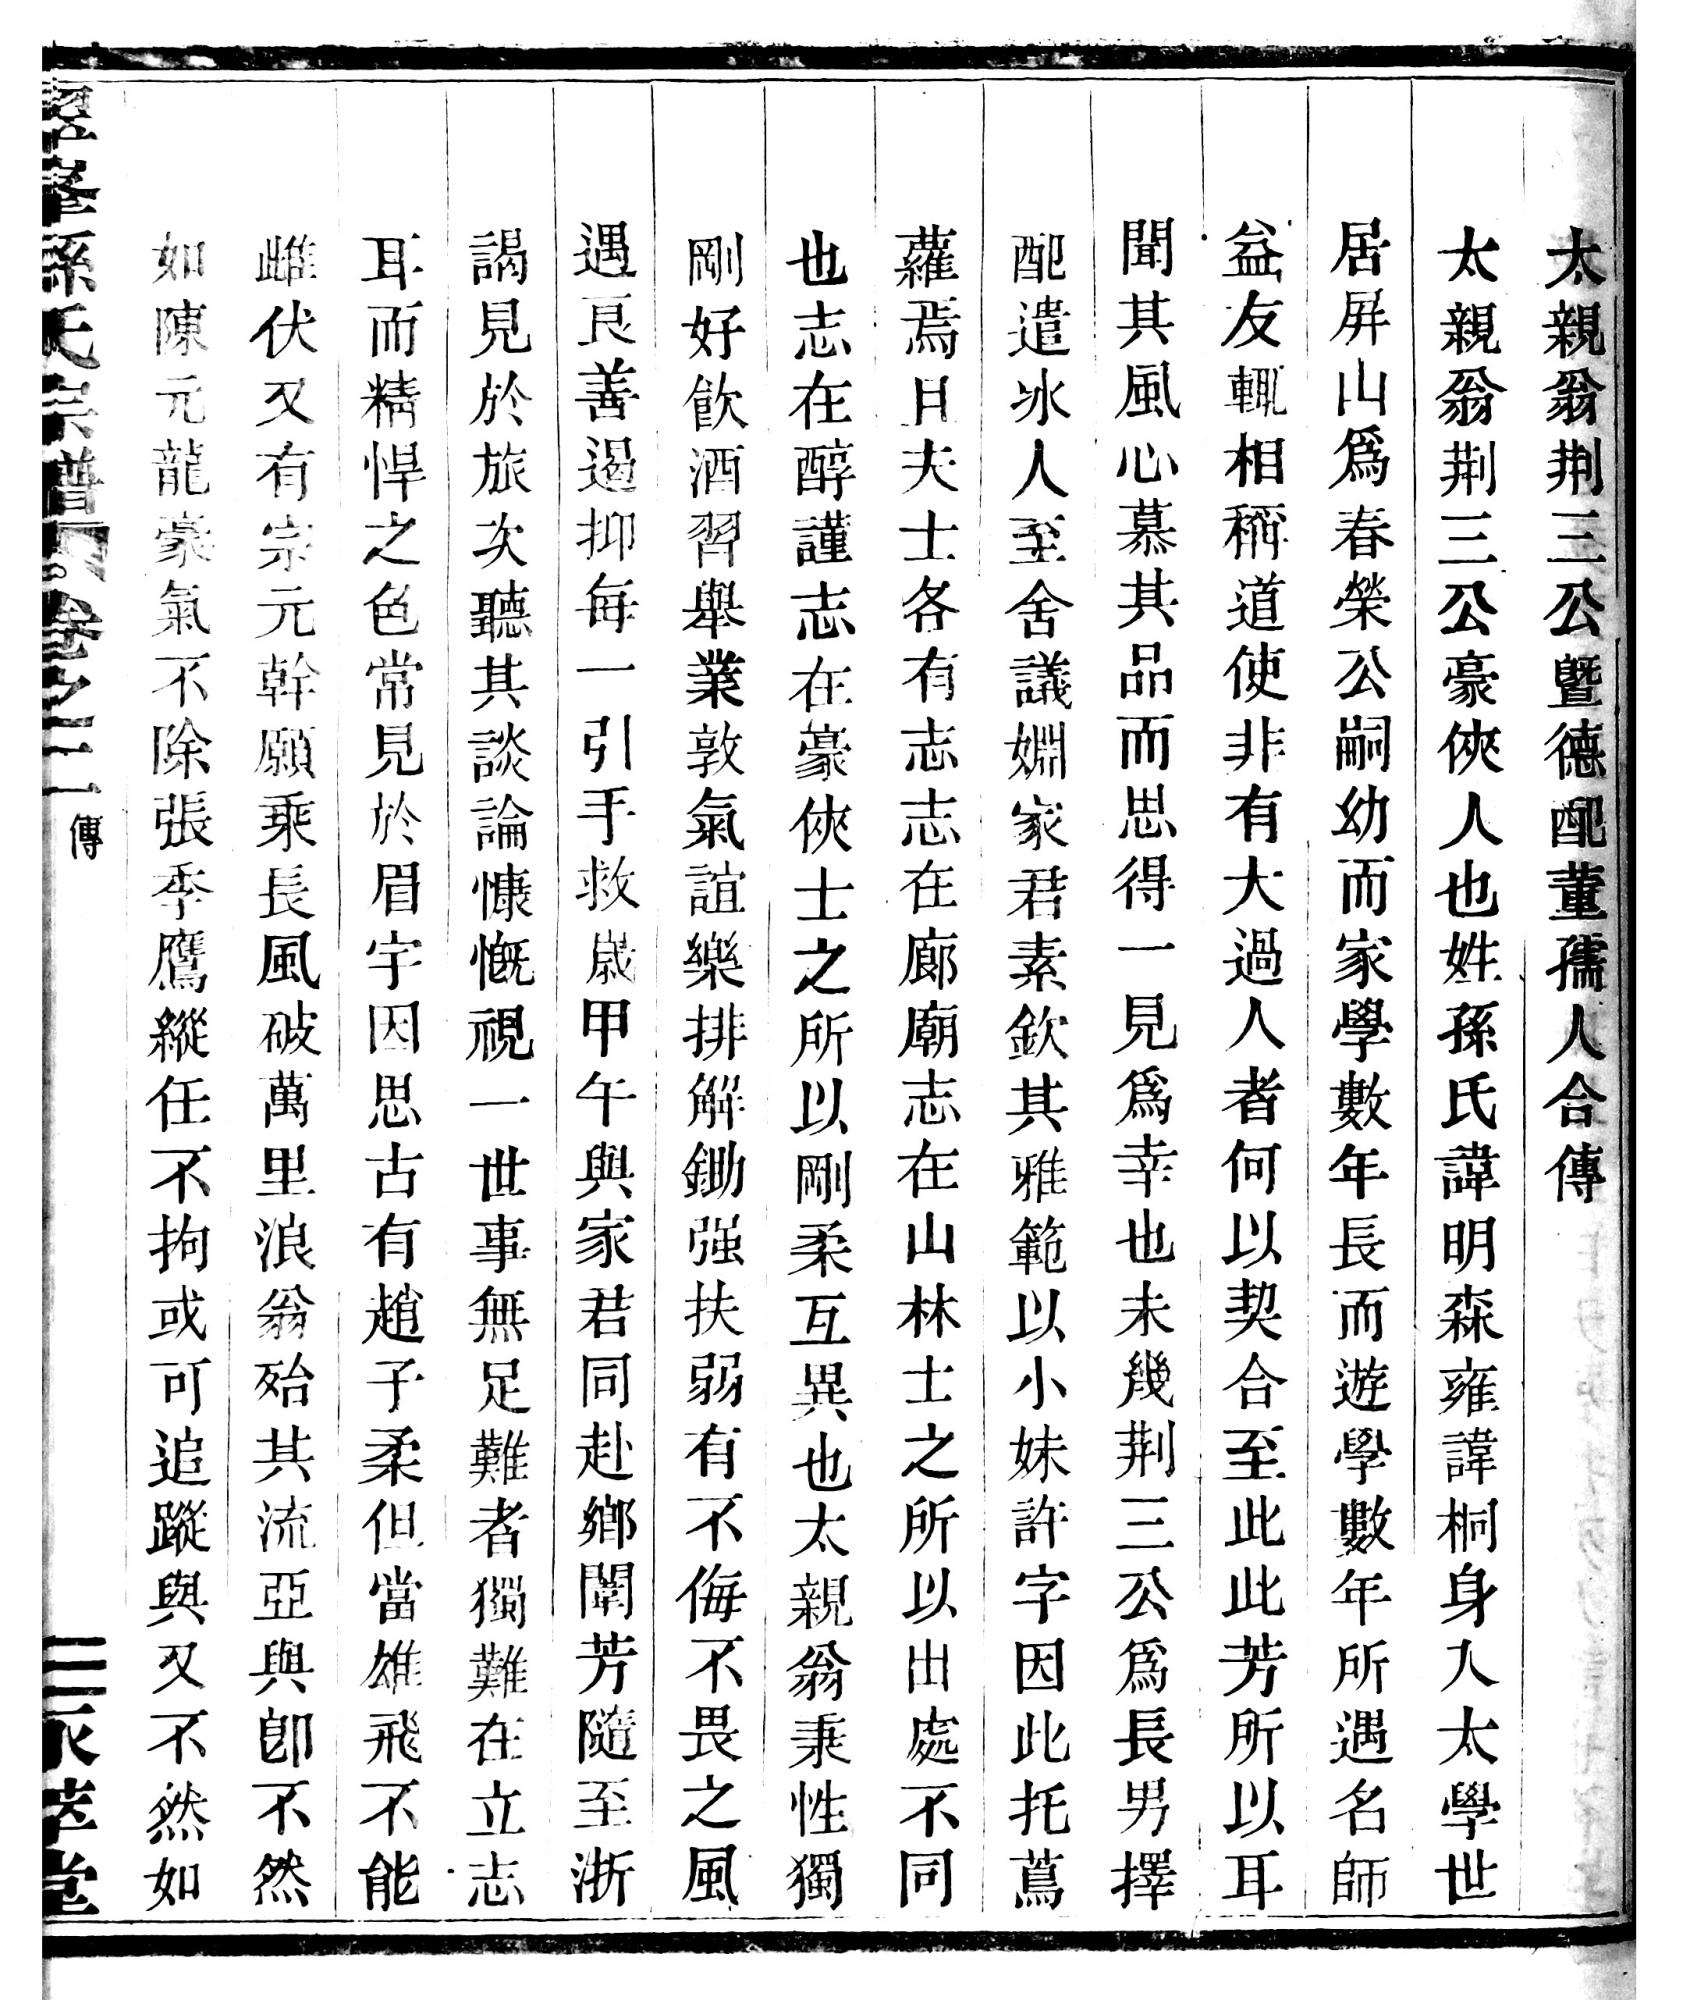 太親翁荆三公暨德配董孺人合傳
太親翁荆三公豪俠人也姓孫氏諱明森雍諱桐身入太學世
居屏山爲春榮公嗣幼而家學數年長而遊學數年所遇名師
益友輙相稱道使非有大過人者何以契合至此此芳所以耳
聞其風心慕其品而思得一見爲幸也未幾荆三公爲長男擇
配遣冰人至舍議婣家君素欽其雅範以小妹許字因此托蔦
蘿焉日夫士各有志志在廊廟志在山林士之所以出處不同
也志在醇謹志在豪俠士之所以剛柔互異也太親翁秉性獨
剛好飲酒習舉業敦氣誼樂排解鋤强扶弱有不侮不畏之風
遇艮善過抑每一引手救嵗甲午與家君同赴鄉闈芳隨至浙
謁見於旅次聽其談論慷慨視一世事無足難者獨難在立志
耳而精悍之色常見於眉宇因思古有趙子柔但當雄飛不能
雌伏又有宗元幹願乘長風破萬里浪翁殆其流亞與卽不然
如陳元龍豪氣不除張季鷹縱任不拘或可追蹤與又不然如
峯孫氏宗譜 卷之二 傳 三 承萃堂